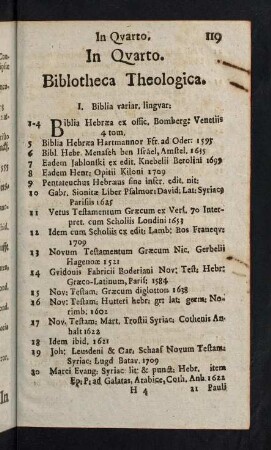 In Qvarto. 119
In Qvarto.
Biblotheca Theologica.
I. Biblia variar. lingvar:
1-4 Biblia Hebræa ex offic. Bomberg: Venetiis
4 tom.
5 Biblia Hebræa Hartmannor Ff: ad Oder: 1595
6 Bibl. Hebr. Menaseh ben Israel, Amstel. 1635
7 Eadem Jablonski ex edit. Knebelii Berolini 1699
8 Eadem Henr: Opitii Kiloni 1709
9 Pentateuchus Hebræus sine inscr. edit. nit:
10 Gabr. Sionitæ Liber Psalmor: David: Lat: Syriacq
Parisiis 1625
11 Vetus Testamentum Græcum ex Vers. 70 Inter-
pret. cum Scholiis Londini 1653
12 Idem cum Scholiis ex edit: Lamb: Bos Franeqv:
1709
13 Novum Testamentum Græcum Nic. Gerbelii
Hagenoæ 1521
14 Gvidonis Fabricii Boderiani Nov: Test: Hebr:
Græco-Latinum, Paris: 1584
15 Nov: Testam. Græcum diglotton 1638
16 Nov: Testam: Hutteri hebr: gr: lat: germ: No-
rimb: 1602
17 Nov. Testam: Mart. Trostii Syriac: Cothenis An-
halt 1622
18 Idem ibid. 1621
19 Joh: Leusdeni & Car: Schaaf Novum Testam:
Syriac: Lugd Batav. 1709
20 Marci Evang: Syriac lit: & punct: Hebr. item
Ep: P: ad Galatas, Arabice, Coth. Anh. 1622
H 4 21 Pauli